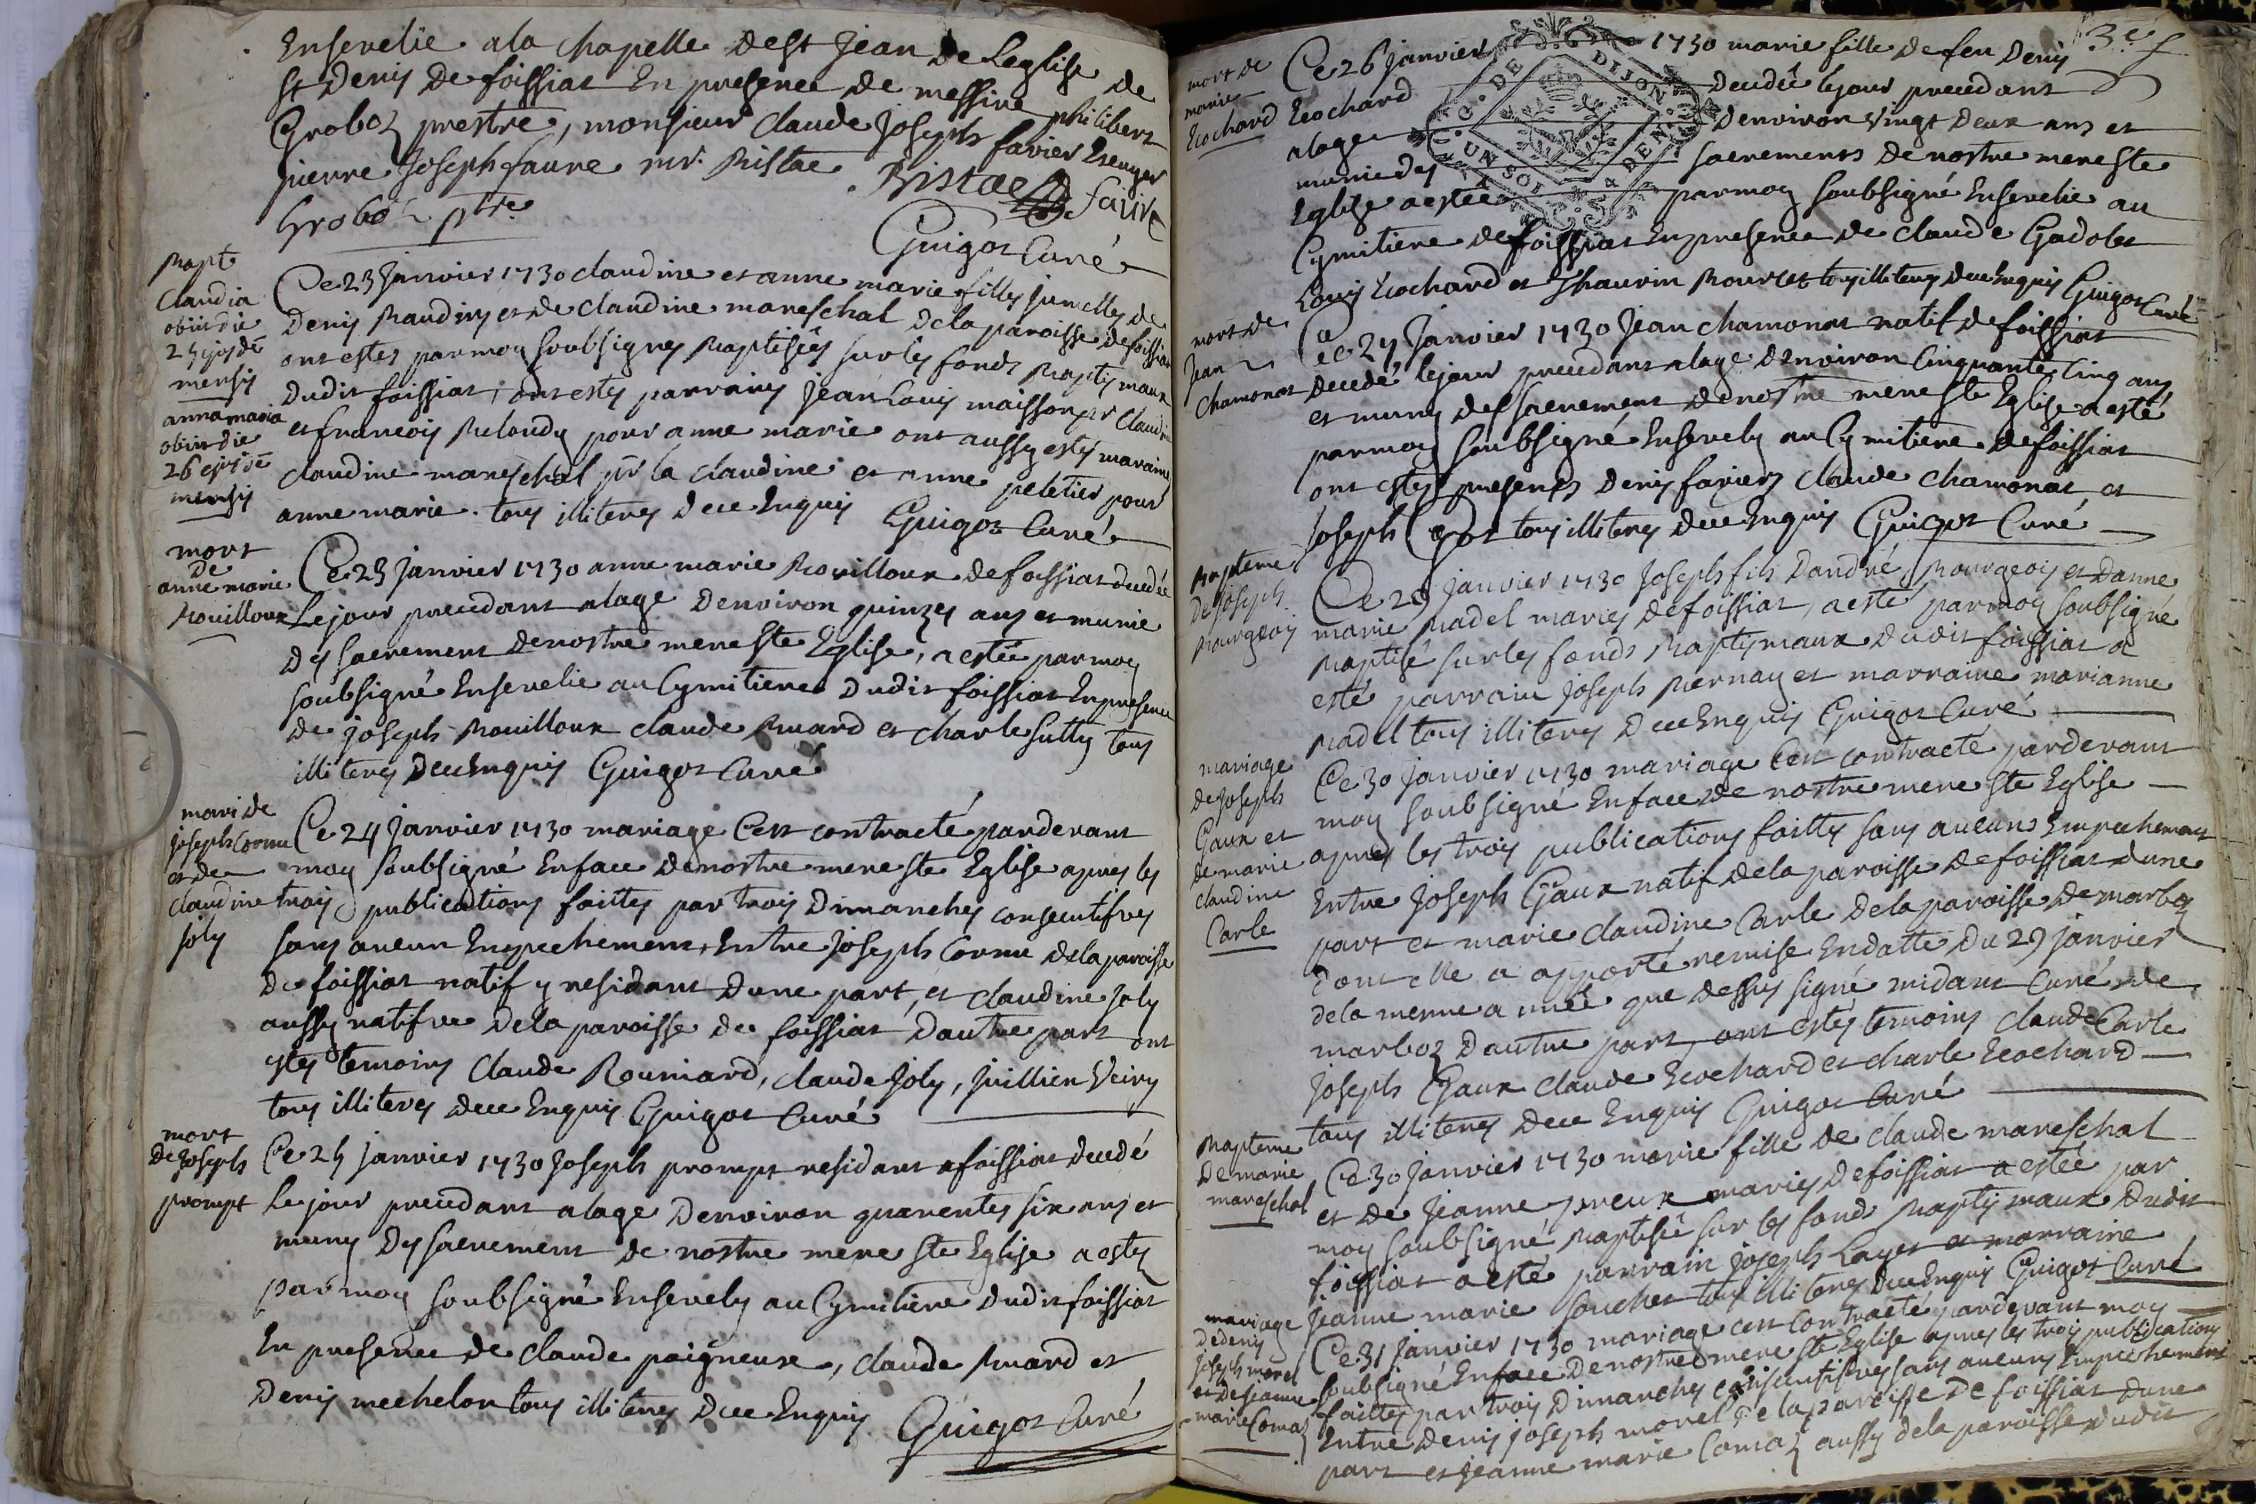 Ensevelie a la chapelle de st Jean de Leglise de
st Denis de foissiat En presence de messire philibert
Groboz prestre, monsieur claude Joseph favier Escuyer
pierre Joseph faure mr. Bistac. Bistac faure
Groboz ptre
Guigot Curé
Bapt
Claudia
obiit die
25 ejusdē
mensis
anna maria
obiit die
26 ejusdē
mensis
Ce 23 Janvier 1730 claudine et anne marie filles jumelles de
Denis Baudin et de claudine mareschal de la paroisse de foissiat
ont estes par moy soubsignes baptisées sur les fonds baptismaux
dudit foissiat, ont estes parrains Jean Louis maisson pr claudine
et francois Beloudy pour anne marie ont aussy estes maraine
claudine mareschal pr la claudine et anne peletier pour
anne marie. tous illiteres de ce Enquis Guigot Curé
mort
de
anne marie
Rouilloux
Ce 23 Janvier 1730 anne marie Rouilloux de foissiat decedée
Le jour precedant alage denviron quinzes ans et munie
des sacrement de nostre mere ste Eglise, a estée par moy
soubsigné Ensevelie au Cymitiere dudit foissiat En presence
de joseph Rouilloux claude Buard et charle sutty tous
illiteres de ce Enquis Guigot Curé
mari de
joseph Cornu
et de
claudine
joly
Ce 24 Janvier 1730 mariage cest contracté pardevant
moy soubsigné En face de nostre mere ste Eglise apres les
trois publications faittes par trois Dimanches consecutifves
sans aucun Enpechement, Entre joseph Cornu de la paroisse
de foissiat natif y residant dune part, et claudine joly
aussy natifve de la paroisse de foissiat dautre part ont
estes temoins claude Rouniard, claude joly, juillien Veiry
tous illiteres de ce Enquis Guigot Curé
mort
de joseph
prompt
Ce 25 janvier 1730 joseph prompt residant a foissiat decedé
Le jour precedant alage denviron quarentes six ans et
muny des sacrement de nostre mere ste Eglise a estez
par moy soubsigné Ensevely au Cymitiere dudit foissiat
En presence de claude poigneux, claude Buard et
Denis mechelon tous illiteres de ce Enquis
Guigot Curé
3e
G. DE DIJON
UN SOL 4 DEN
mort de
marie
Ecochard
Ce 26 janvier 1730 marie fille de feu Denis
Ecochard decedée le jour precedant
alage denviron vingt deux ans et
munie des sacrements de nostre mere ste
Eglise a estée par moy soubsigné Ensevelie au
Cymitiere de foissiat En presence de claude Gadolet
Louis Ecochard et Thaurin Bourcet tous illiteres de ce Enquis Guigot Curé
mort de
Jean
chamonat
Ce 27 Janvier 1730 Jean chamonat natif de foissiat
decedé le jour precedant alage denviron Cinquante Cinq ans
et muny des sacrement de nostre mere ste Eglise a esté
par moy soubsigné Ensevely au Cymitiere de foissiat
ont estes presents Denis favier claude chamonat, et
Joseph tous illiteres de ce Enquis Guigot Curé
Bapteme
de joseph
Bourgeois
Ce 29 janvier 1730 Joseph fils Dandré Bourgeois et Danne
marie Badel maries de foissiat, a esté par moy soubsigné
Baptisé sur les fonds Baptismaux dudit foissiat a
esté parrain joseph Bernay et marraine marianne
Badel tous illiteres de ce Enquis Guigot Curé
mariage
de joseph
Gaux et
de marie
claudine
Carle
Ce 30 janvier 1730 mariage cest contracté pardevant
moy soubsigné En face de nostre mere ste Eglise
apres les trois publications faittes sans aucuns Empechement
Entre joseph Gaux natif de la paroisse de foissiat dune
part et marie claudine Carle de la paroisse de marboz
dont elle a apporté remise En datte du 29 janvier
de la meme année que dessus signé midant Curé de
marboz dautre part, ont estes temoins claude Carle
joseph Gaux claude Ecochard et charle Ecochard
tous illiteres de ce Enquis Guigot Curé
Bapteme
de marie
mareschal
Ce 30 janvier 1730 marie fille de claude mareschal
et de jeanne preux maries de foissiat a estée par
moy soubsigné Baptisée sur les fonds Baptismaux dudit
foissiat a esté parrain joseph Layer et marraine
jeanne marie souchet tous illiteres de ce Enquis Guigot Curé
mariage
de denis
joseph morel
et de jeanne
marie Comaz
Ce 31 janvier 1730 mariage cest contracté pardevant moy
soubsigné En face de nostre mere ste Eglise apres les trois publications
faittes par trois Dimanches consecutifves sans aucuns Empechement
Entre denis joseph morel de la paroisse de foissiat dune
part et jeanne marie Comaz aussy de la paroisse dudit